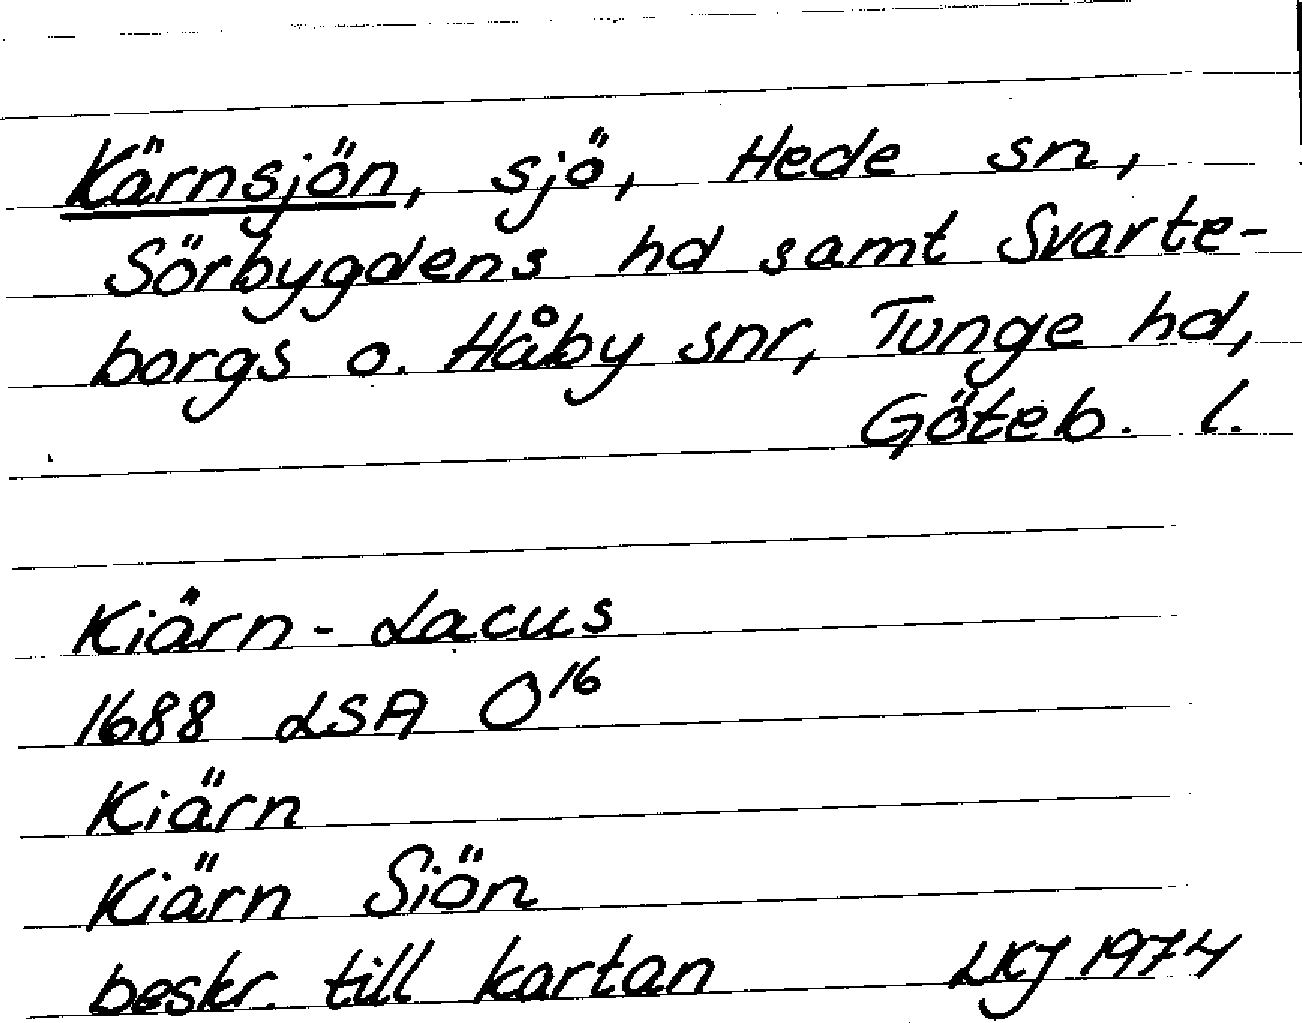 Kärnsjön, sjö, Hede sn,
Sörbygdens hd samt Svarte-
borgs o. Håby snr, Tunge hd,
Göteb. l.
Kiärn-Lacus
1688 LSA O¹⁶
Kiärn
Kiärn Siön
beskr. till kartan LKJ 1974